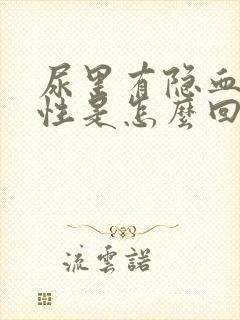 尿里有隐血
性是怎麼回
流雲諾